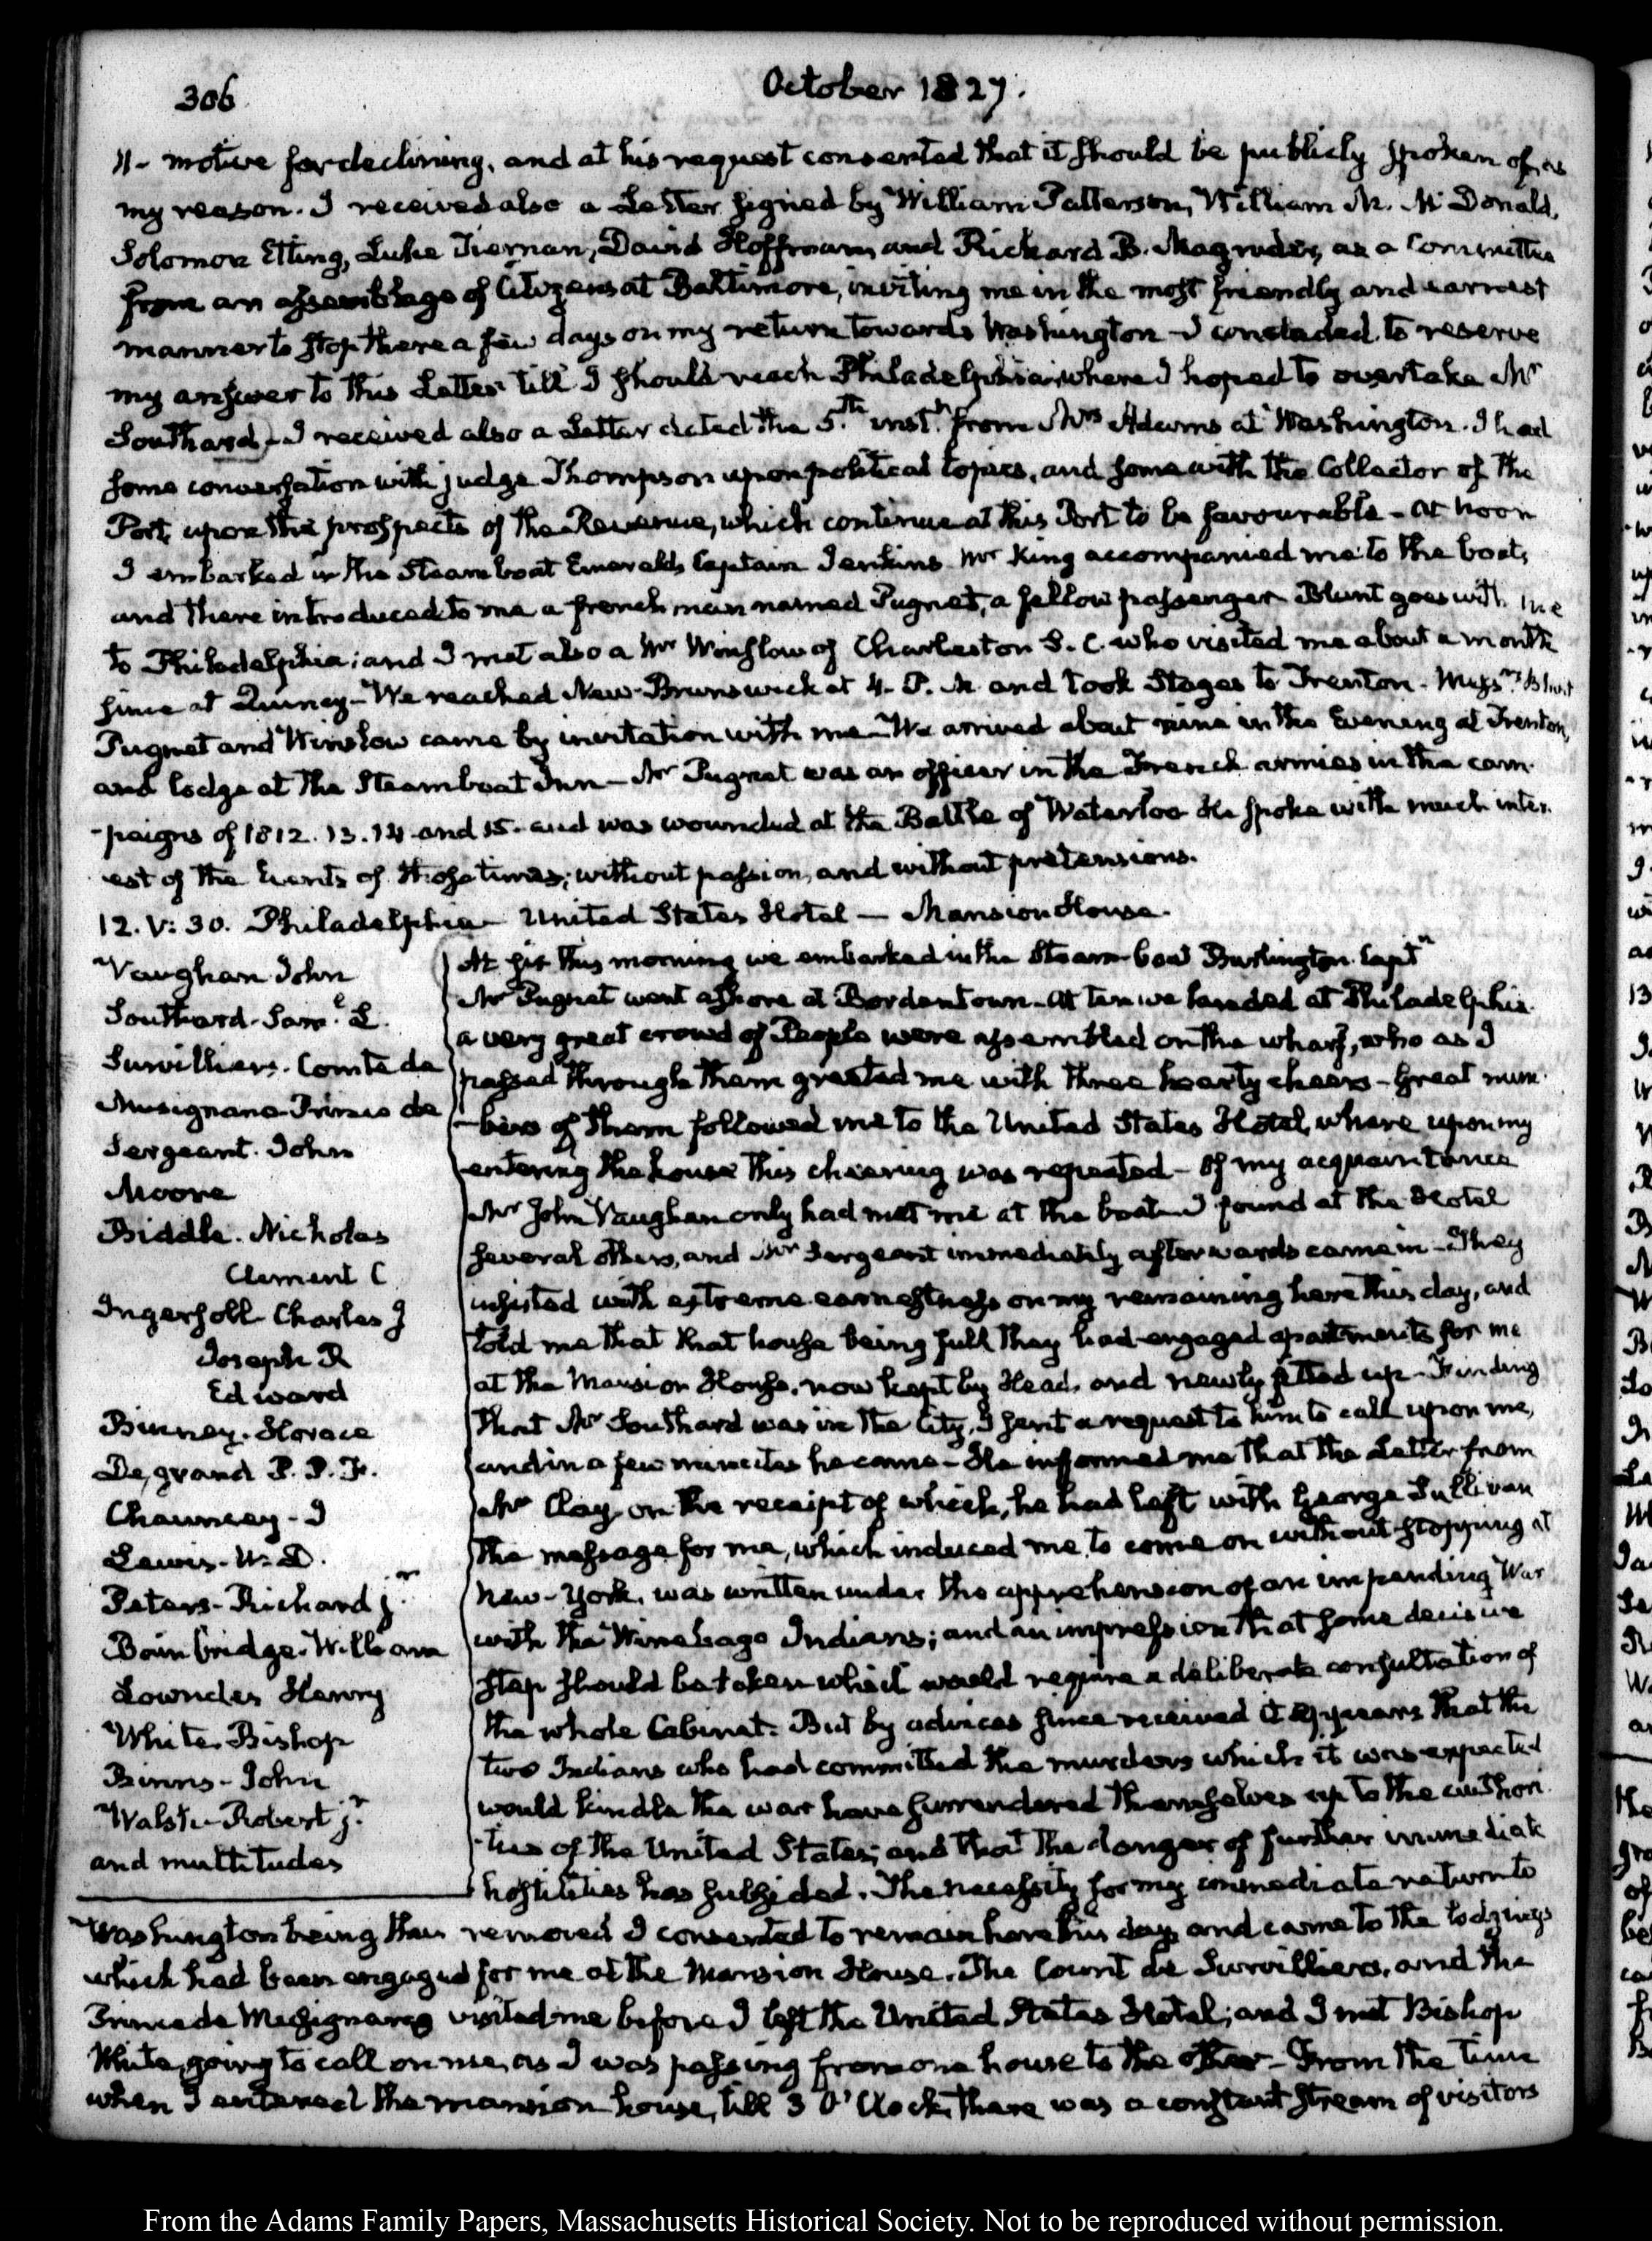 306
October 1827.
11- motive for declining, and at his request consented that it should be publicly spoken of, as
my reason. I received also a Letter signed by William Patterson, William M. McDonald,
Solomon Etting, Luke Tiernan, David Hoffman, and Richard B. Magruder, as a Committee
from an assemblage of Citizens at Baltimore, inviting me in the most friendly and earnest
manner to stop there a few days on my return towards Washington – I concluded to reserve
my answer to this Letter till I should reach Philadelphia where I hoped to overtake Mr
Southard – I received also a Letter dated the 5.th inst.t from Mrs Adams at Washington. I had
some conversation with judge Thompson upon political topics, and some with the Collector of the
Port, upon the prospects of the Revenue, which continue at this Port to be favourable – At Noon
I embarked in the Steam boat Emerald, Captain Jenkins. Mr King accompanied me to the boat,
and there introduced to me a french man named Pugnet, a fellow passenger Blunt goes with me
to Philadelphia; and I met also a Mr Winslow of Charleston S. C. who visited me about a month
since at Quincy – We reached New-Brunswick at 4. P. M. and took Stages to Trenton. Messrs. Blunt
Pugnet and Winslow came by invitation with me – We arrived about nine in the Evening at Trenton,
and lodge at the Steamboat Inn – Mr Pugnet was an officer in the French armies in the cam-
-paigns of 1812. 13. 14 and 15. and was wounded at the Battle of Waterloo He spoke with much inter-
est of the Events of those times; without passion, and without pretensions.
12. V: 30. Philadelphia – United States Hotel – Mansion House.
Vaughan John
Southard. Saml. L.
Survilliers. Comte de
Musignano Prince de
Sergeant. John
Moore
Biddle. Nicholas
Clement C
Ingersoll Charles J
Joseph R
Edward
Binney. Horace
Degrand P. P. F.
Chauncey - I
Lewis. W. D.
Peters - Richard jr
Bainbridge. William
Lowndes Henry
White. Bishop
Binns - John
Walsh - Robert jr.
and multitudes
At six this morning we embarked in the Steam-boat Burlington. Captn
Mr Pugnet went ashore at Bordentown. At ten we landed at Philadelphia.
a very great crowd of People were assembled on the wharf, who as I
passed through them greeted me with three hearty cheers – Great num-
-bers of them followed me to the United States Hotel, where upon my
entering the house this cheering was repeated – Of my acquaintance
Mr John Vaughan only had met me at the boat – I found at the Hotel
several others, and Mr Sergeant immediately afterwards came in – They
insisted with extreme earnestness on my remaining here this day, and
told me that that house being full they had engaged apartments for me
at the Mansion House, now kept by Head, and newly fitted up – Finding
that Mr Southard was in the City, I sent a request to him to call upon me,
and in a few minutes he came – He informed me that the Letter from
Mr Clay, on the receipt of which, he had left with George Sullivan
the message for me, which induced me to come on without stopping at
New-York, was written under the apprehension of an impending War
with the Winebago Indians; and an impression that some decisive
step should be taken which would require a deliberate consultation of
the whole Cabinet. But by advices since received it appears that the
two Indians who had committed the murders which it was expected
would kindle the war have surrendered themselves up to the authori-
-ties of the United States; and that the danger of further immediate
hostilities has subsided. The necessity for my immediate return to
Washington being thus removed I consented to remain here this day, and came to the lodgings
which had been engaged for me at the Mansion House. The Count de Survilliers, and the
Prince de Musignano visited me before I left the United States Hotel; and I met Bishop
White, going to call on me, as I was passing from one house to the other – From the time
when I entered the mansion house, till 3 O'Clock, there was a constant stream of visitors
From the Adams Family Papers, Massachusetts Historical Society. Not to be reproduced without permission.